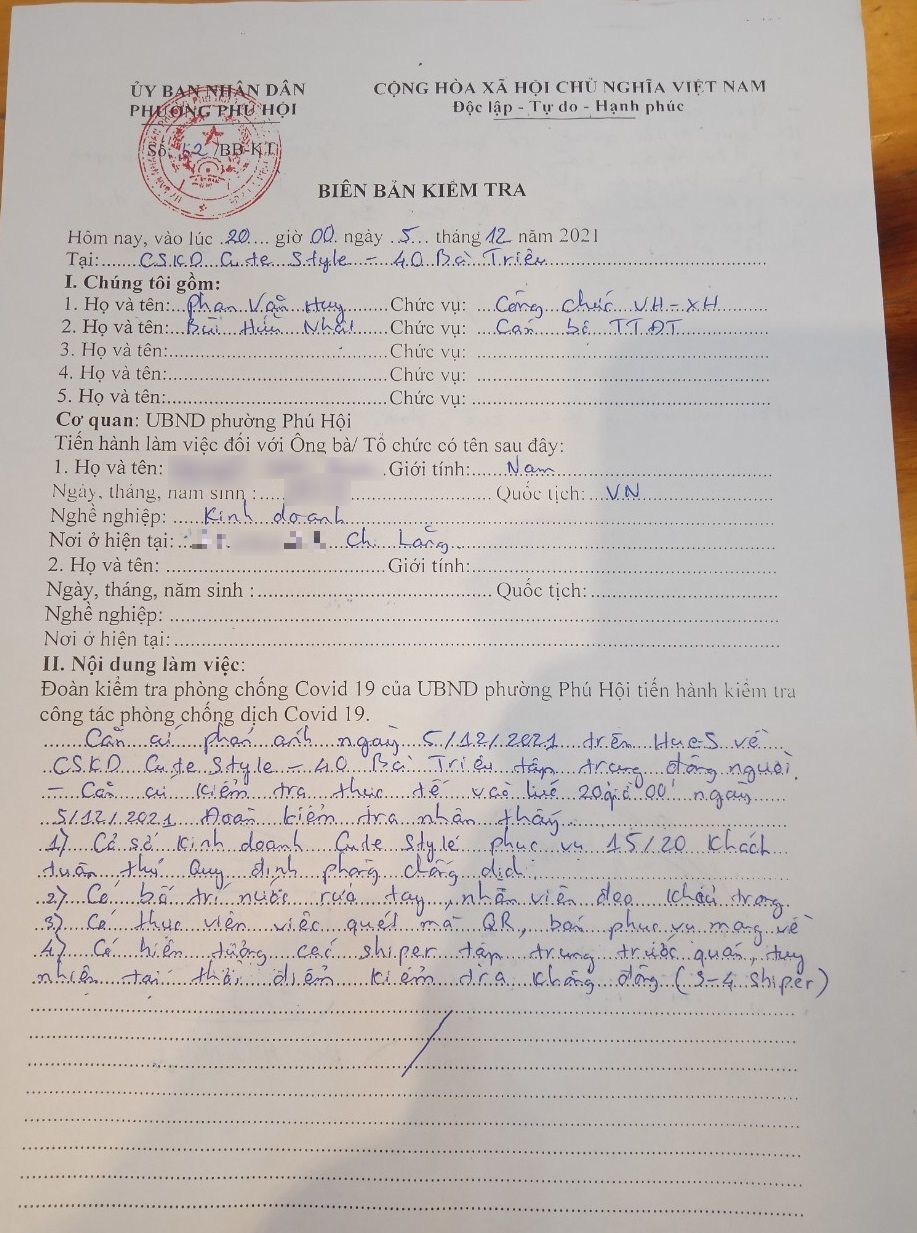 ỦY BAN NHÂN DÂN
PHƯỜNG PHÚ HỘI
CỘNG HÒA XÃ HỘI CHỦ NGHĨA VIỆT NAM
Độc lập - Tự do - Hạnh phúc
Số: 52 /BB-KT
BIÊN BẢN KIỂM TRA
Hôm nay, vào lúc .20.... giờ 00. ngày .5... tháng 12 năm 2021
Tại:...... CSKD Cute Style - 40 Bà Triệu
I. Chúng tôi gồm:
1. Họ và tên: Phan Văn Huy Chức vụ: Công chức VH-XH
2. Họ và tên: Bùi Hữu Nhật Chức vụ: Cán bộ TTĐT
3. Họ và tên: Chức vụ:
4. Họ và tên: Chức vụ:
5. Họ và tên: Chức vụ:
Cơ quan: UBND phường Phú Hội
Tiến hành làm việc đối với Ông bà/ Tổ chức có tên sau đây:
1. Họ và tên: Giới tính: Nam
Ngày, tháng, năm sinh : Quốc tịch: VN
Nghề nghiệp: Kinh doanh
Nơi ở hiện tại: Chi Lăng
2. Họ và tên: Giới tính:
Ngày, tháng, năm sinh : Quốc tịch:
Nghề nghiệp:
Nơi ở hiện tại:
II. Nội dung làm việc:
Đoàn kiểm tra phòng chống Covid 19 của UBND phường Phú Hội tiến hành kiểm tra
công tác phòng chống dịch Covid 19.
Căn cứ phản ánh ngày 5/12/2021 trên Hue-S về
CSKD Cute Style - 40 Bà Triệu tập trung đông người.
- Căn cứ kiểm tra thực tế vào lúc 20giờ 00' ngày
5/12/2021 Đoàn kiểm tra nhận thấy.
1) Cơ sở kinh doanh Cute Style phục vụ 15/20 khách
tuân thủ quy định phòng chống dịch.
2) Có bố trí nước rửa tay, nhân viên đeo khẩu trang
3) Có thực viện việc quét mã QR, bán phục vụ mang về
4) Có hiện tượng các shiper tập trung trước quán, tuy
nhiên tại thời điểm kiểm tra không đông (3-4 shiper)